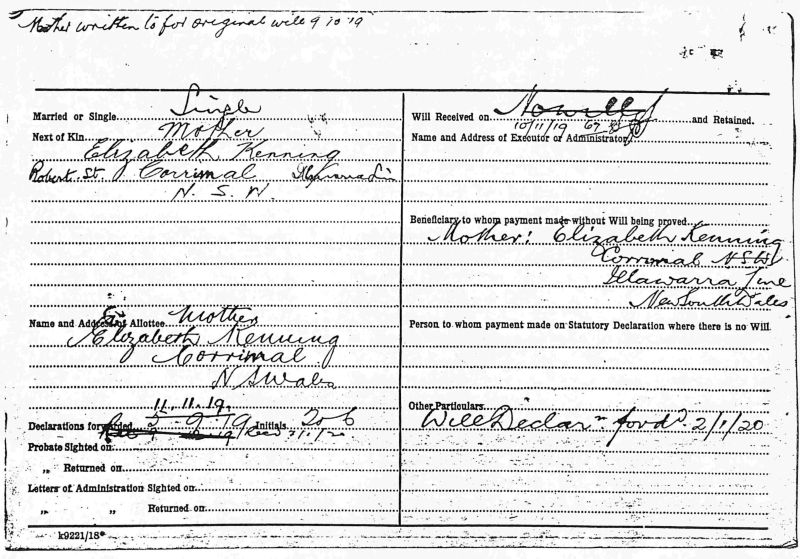 Mother written to for original will 9 10 19
Married or Single Single
Next of Kin Mother
Elizabeth Kenning
Robert St. Corrimal Illawarra Lin
N. S. W.
Name and Address of Allottee Mother
Elizabeth Kenning
Corrimal
N S Wales
11.11.19.
Declarations forwarded 9 19 Initials
Probate Sighted on
„ Returned on
Letters of Administration Sighted on
„ „ Returned on
k9221/18
Will Received on No will and Retained.
10/11/19
Name and Address of Executor or Administrator
Beneficiary to whom payment made without Will being proved
Mother: Elizabeth Kenning
Corrimal NSW
Illawarra Line
New South Wales
Person to whom payment made on Statutory Declaration where there is no Will.
Other Particulars
Will Declarn ford 2/1/20